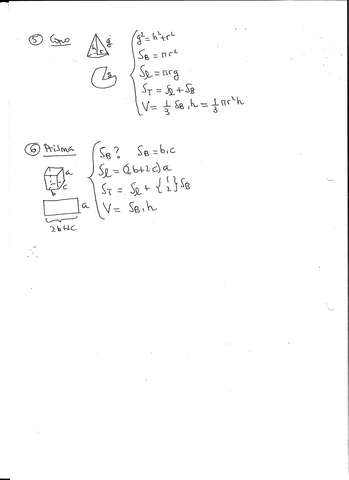 ⑤ Cono
h r g
g
g² = h² + r²
S_B = πr²
S_l = πrg
S_T = S_l + S_B
V = 1/3 S_B · h = 1/3 πr²h
⑥ Prisma
a
b c
a
2b+2c
S_B? S_B = b·c
S_l = (2b+2c)a
S_T = S_l + {1 2} S_B
V = S_B · h